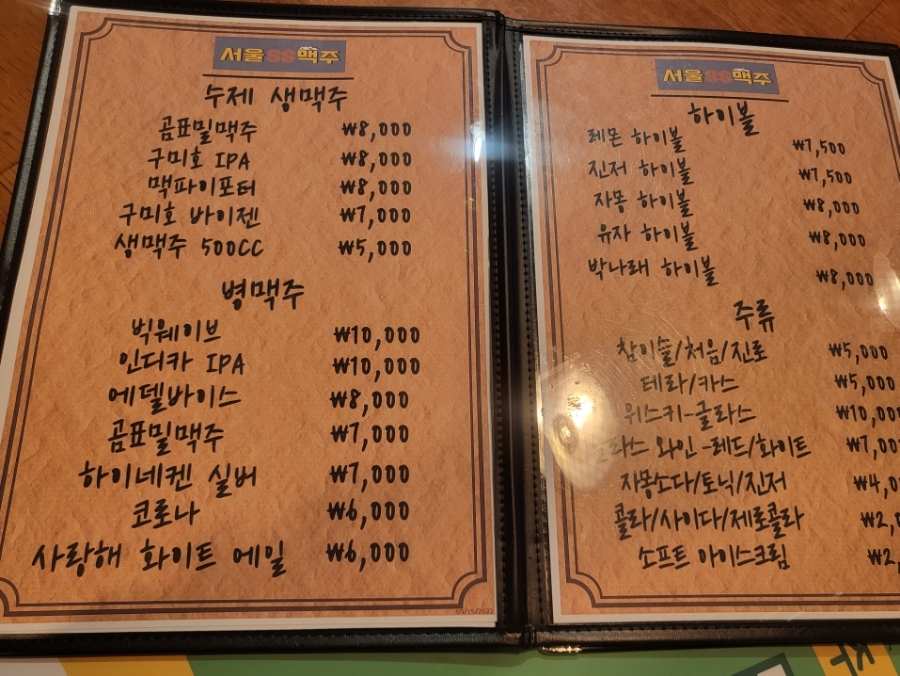 서울88맥주
수제 생맥주
곰표밀맥주 ₩8,000
구미호 IPA ₩8,000
맥파이포터 ₩8,000
구미호 바이젠 ₩7,000
생맥주 500CC ₩5,000
병맥주
빅웨이브 ₩10,000
인디카 IPA ₩10,000
에델바이스 ₩8,000
곰표밀맥주 ₩7,000
하이네켄 실버 ₩7,000
코로나 ₩6,000
사랑해 화이트 에일 ₩6,000
09/15/2022
서울88맥주
하이볼
레몬 하이볼 ₩7,500
진저 하이볼 ₩7,500
자몽 하이볼 ₩8,000
유자 하이볼 ₩8,000
박나래 하이볼 ₩8,000
주류
참이슬/처음/진로 ₩5,000
테라/카스 ₩5,000
위스키-글라스 ₩10,000
와인-레드/화이트
자몽소다/토닉/진저
콜라/사이다/제로콜라
소프트 아이스크림